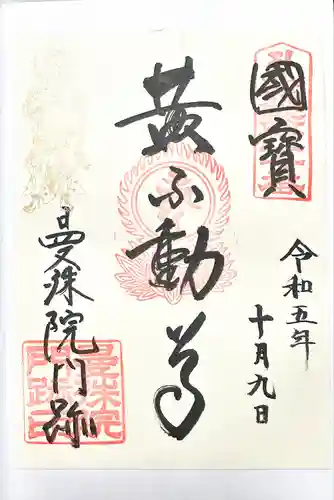 國寶
令和五年
十月九日
黄不動尊
曼珠院門跡